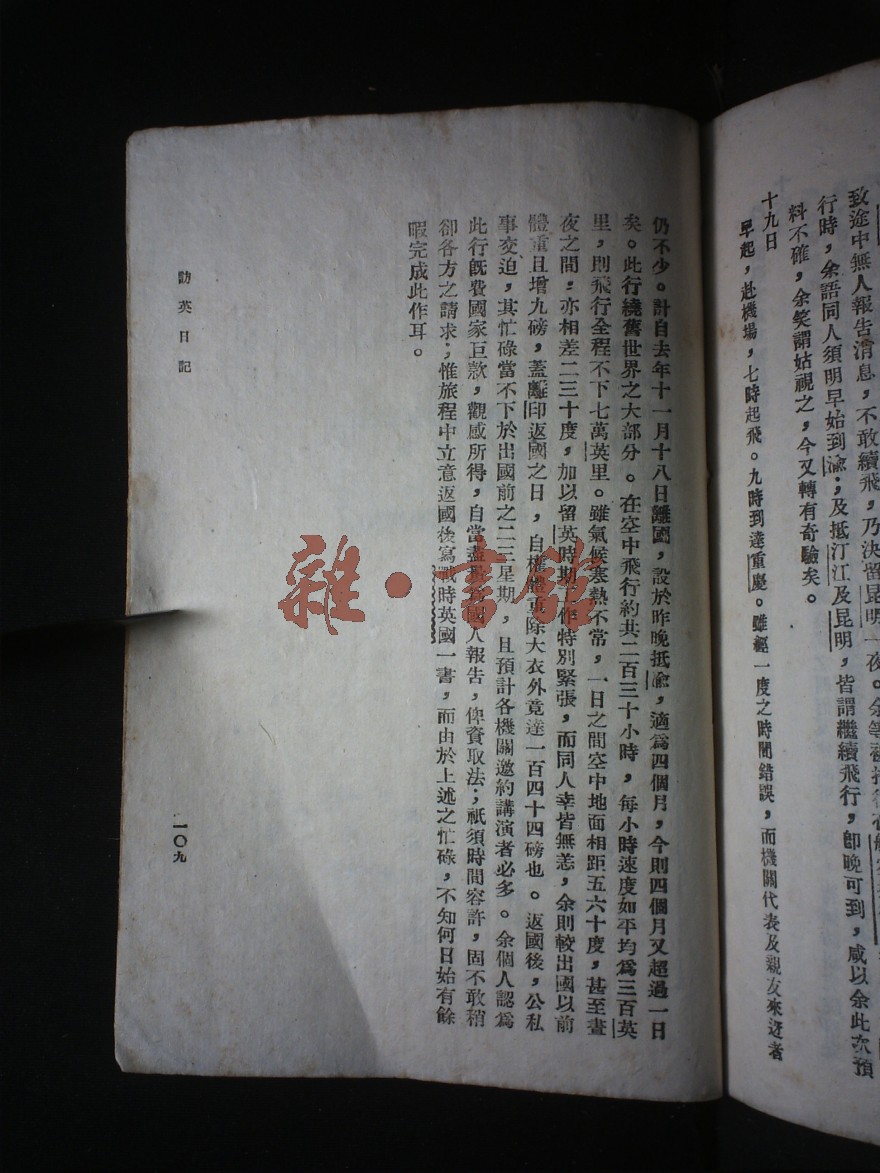 致途中無人報告消息,不敢續飛,乃決留昆明一夜。余等
行時,余語同人須明早始到渝;及抵汀江及昆明,皆謂繼續飛行,卽晚可到,咸以余此次預
料不確,余笑謂姑視之,今又轉有奇驗矣。
十九日
早起,赴機場,七時起飛。九時到達重慶。雖經一度之時間錯誤,而機關代表及親友來迓者
仍不少。計自去年十一月十八日離國,設於昨晚抵渝,適爲四個月,今則四個月又超過一日
矣。此行繞舊世界之大部分。在空中飛行約共二百三十小時,每小時速度如平均爲三百英
里,則飛行全程不下七萬英里。雖氣候寒熱不常,一日之間空中地面相距五六十度,甚至晝
夜之間:亦相差二三十度,加以留英時期工作特別緊張,而同人幸皆無恙,余則較出國以前
體重且增九磅,蓋離印返國之日,自權體重除大衣外竟達一百四十四磅也。返國後,公私
事交迫,其忙碌當不下於出國前之二三星期,且預計各機關邀約講演者必多。余個人認爲
此行旣費國家巨款,觀感所得,自當盡量國人報告,俾資取法;祇須時間容許,固不敢稍
卻各方之請求;惟旅程中立意返國後寫戰時英國一書,而由於上述之忙碌,不知何日始有餘
暇完成此作耳。
訪英日記
一〇九
雜·書館